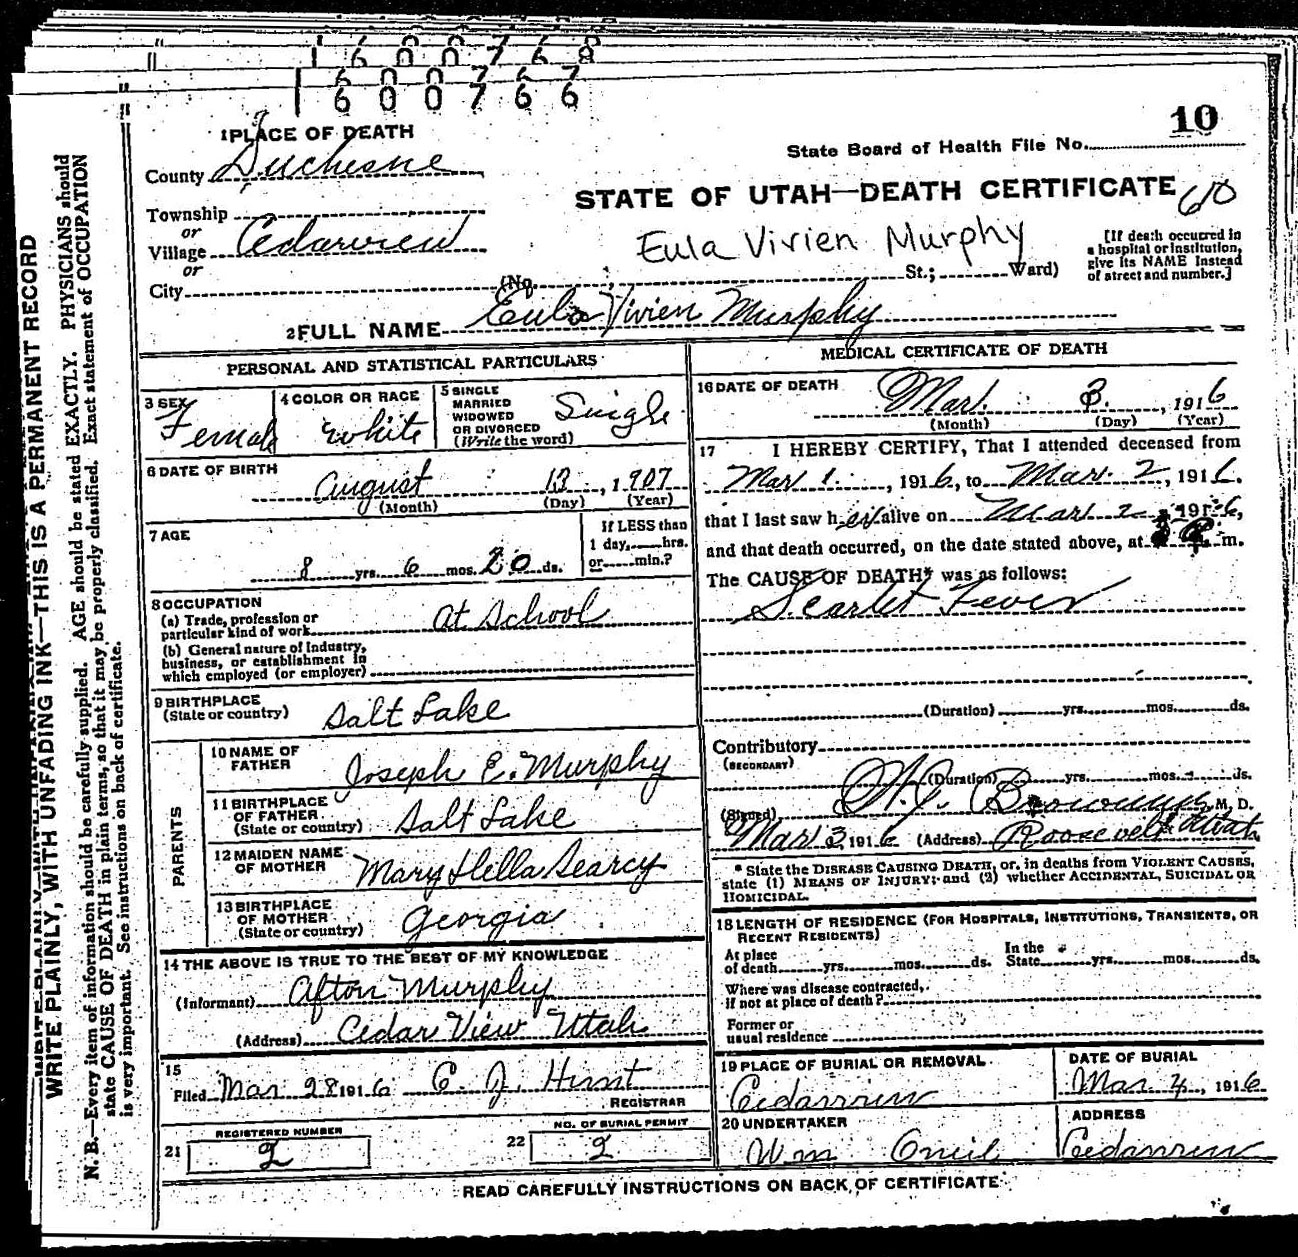 1600768
1600767
66
10
1 PLACE OF DEATH
State Board of Health File No.
County Duchesne
STATE OF UTAH—DEATH CERTIFICATE
610
Township
or
Village Cedarview
or
City (No. St.; Ward)
Eula Vivien Murphy
[If death occurred in
a hospital or institution,
give its NAME instead
of street and number.]
2 FULL NAME Eula Vivien Murphy
PERSONAL AND STATISTICAL PARTICULARS
3 SEX Female
4 COLOR OR RACE white
5 SINGLE
MARRIED
WIDOWED
OR DIVORCED
(Write the word) Single
6 DATE OF BIRTH
August 13, 1907
(Month) (Day) (Year)
7 AGE
8 yrs. 6 mos. 20 ds.
If LESS than
1 day, hrs.
or min.?
8 OCCUPATION
(a) Trade, profession or
particular kind of work At School
(b) General nature of Industry,
business, or establishment in
which employed (or employer)
9 BIRTHPLACE
(State or country) Salt Lake
PARENTS
10 NAME OF
FATHER Joseph E. Murphy
11 BIRTHPLACE
OF FATHER
(State or country) Salt Lake
12 MAIDEN NAME
OF MOTHER Mary Hella Searcy
13 BIRTHPLACE
OF MOTHER
(State or country) Georgia
14 THE ABOVE IS TRUE TO THE BEST OF MY KNOWLEDGE
(Informant) Afton Murphy
(Address) Cedar View Utah
15
Filed Mar 28 1916 C. J.
REGISTRAR
REGISTERED NUMBER
21 2
NO. OF BURIAL PERMIT
22 2
MEDICAL CERTIFICATE OF DEATH
16 DATE OF DEATH
Mar. 3., 1916
(Month) (Day) (Year)
17 I HEREBY CERTIFY, That I attended deceased from
Mar 1., 1916, to Mar. 2, 1916.
that I last saw her alive on Mar 2, 1916,
and that death occurred, on the date stated above, at m.
The CAUSE OF DEATH* was as follows:
Scarlet Fever
(Duration) yrs. mos. ds.
Contributory
(SECONDARY)
(Duration) yrs. mos. ds.
(Signed) M. D.
Mar 3, 1916 (Address) Roosevelt Utah
* State the DISEASE CAUSING DEATH, or, in deaths from VIOLENT CAUSES,
state (1) MEANS OF INJURY; and (2) whether ACCIDENTAL, SUICIDAL OR
HOMICIDAL.
18 LENGTH OF RESIDENCE (FOR HOSPITALS, INSTITUTIONS, TRANSIENTS, OR
RECENT RESIDENTS)
At place
of death yrs. mos. ds.
In the
State yrs. mos. ds.
Where was disease contracted,
if not at place of death?
Former or
usual residence
19 PLACE OF BURIAL OR REMOVAL
Cedarview
DATE OF BURIAL
Mar 4, 1916
20 UNDERTAKER
Wm Oneil
ADDRESS
Cedarview
READ CAREFULLY INSTRUCTIONS ON BACK OF CERTIFICATE
WRITE PLAINLY, WITH UNFADING INK—THIS IS A PERMANENT RECORD
N. B.—Every item of information should be carefully supplied. AGE should be stated EXACTLY. PHYSICIANS should
state CAUSE OF DEATH in plain terms, so that it may be properly classified. Exact statement of OCCUPATION
is very important. See instructions on back of certificate.